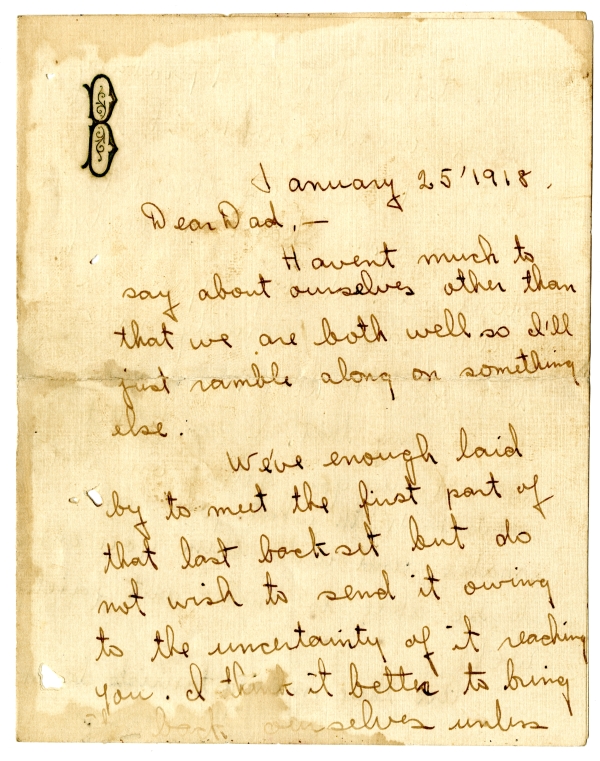 January 25'1918.
Dear Dad,—
Havent much to
say about ourselves other than
that we are both well so I'll
just ramble along on something
else.
We've enough laid
by to meet the first part of
that last backset but do
not wish to send it owing
to the uncertainty of it reaching
you. I think it better to bring
back ourselves unless